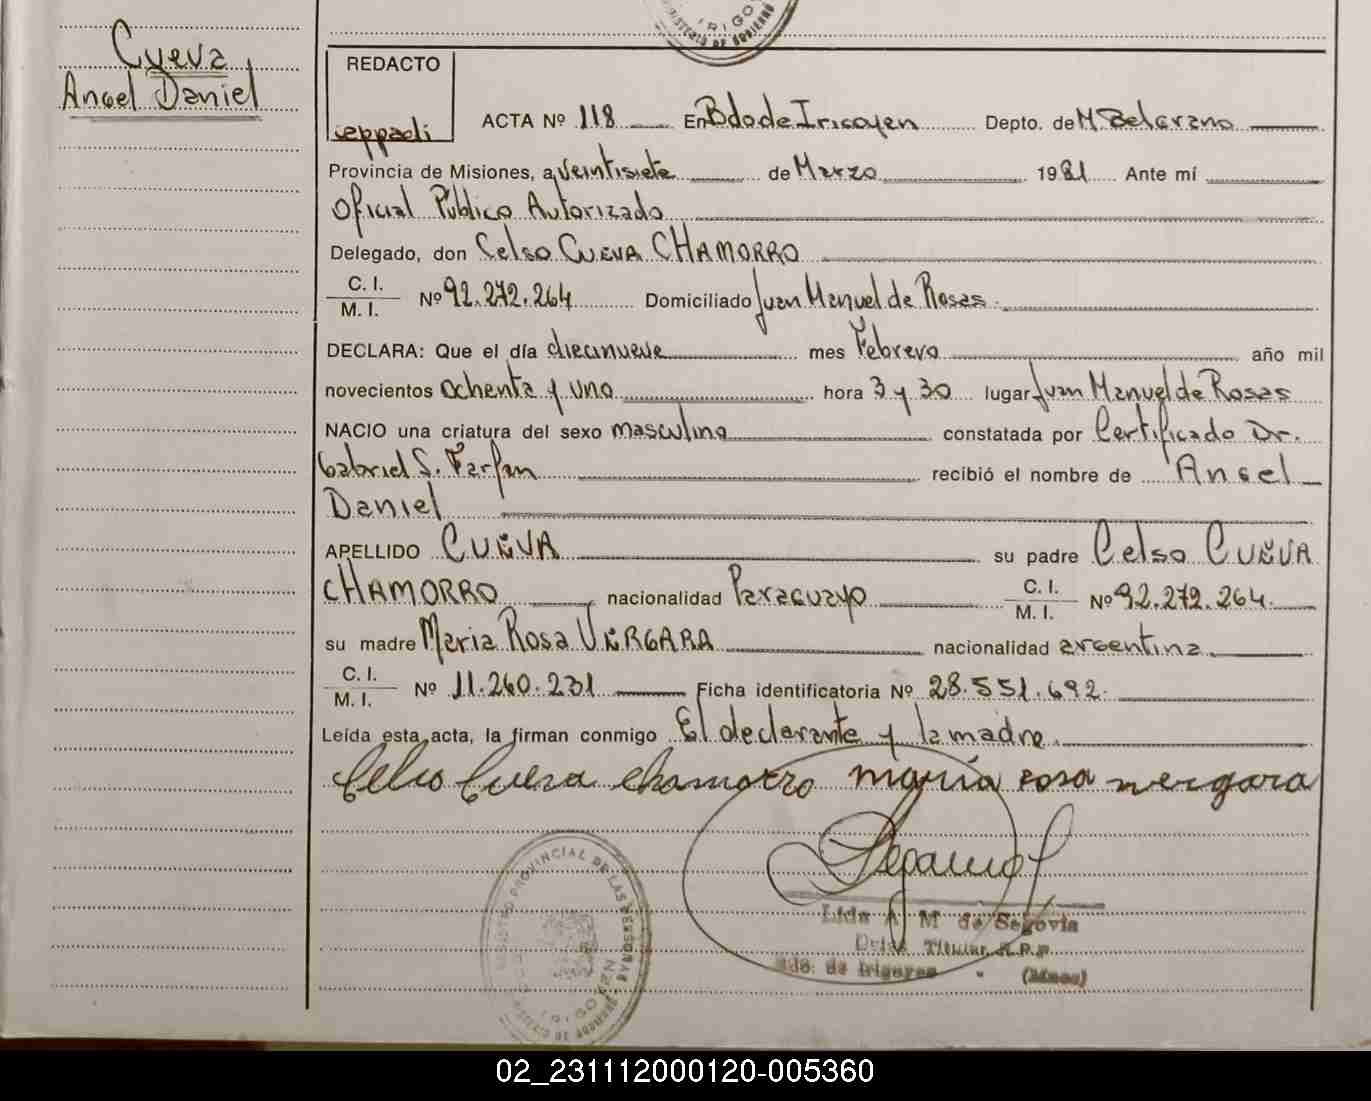 Cueva,
Angel Daniel
IRIGO
MINISTERIO DE GOBIERNO
REDACTO
ACTA Nº 118 En Bdo de Irigoyen Depto. de M. Belgrano
Provincia de Misiones, a veintisiete de Marzo 1981 Ante mí
Oficial Público Autorizado
Delegado, don Celso CUEVA CHAMORRO
C. I.
M. I. Nº 92.272.264 Domiciliado Juan Manuel de Rosas.
DECLARA: Que el día diecinueve mes Febrero año mil
novecientos ochenta y uno hora 3 y 30 lugar Juan Manuel de Rosas
NACIO una criatura del sexo masculino constatada por Certificado Dr.
Gabriel S. Farfan recibió el nombre de Angel
Daniel
APELLIDO CUEVA su padre Celso CUEVA
CHAMORRO nacionalidad Paraguayo C. I.
M. I. Nº 92.272.264.
su madre Maria Rosa VERGARA nacionalidad argentina.
C. I.
M. I. Nº 11.260.231 Ficha identificatoria Nº 28.551.692.
Leída esta acta, la firman conmigo El declarante y la madre.
Celso Cueva Chamorro maría rosa vergara
Lida A. M de Segovia
Titular R.P.P
Bdo. de Irigoyen - (Mnes)
REGISTRO PROVINCIAL DE LAS PERSONAS
02_231112000120-005360